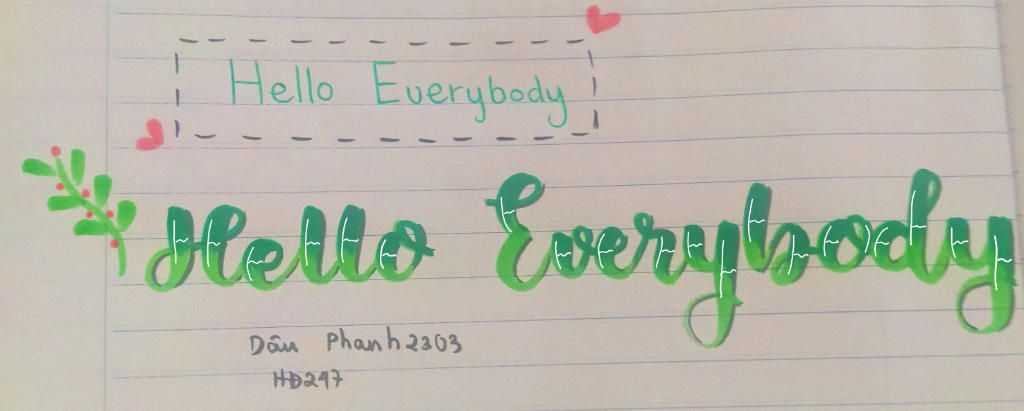 Hello Everybody
Hello Everybody
Dâu Phanh2303
HĐ247